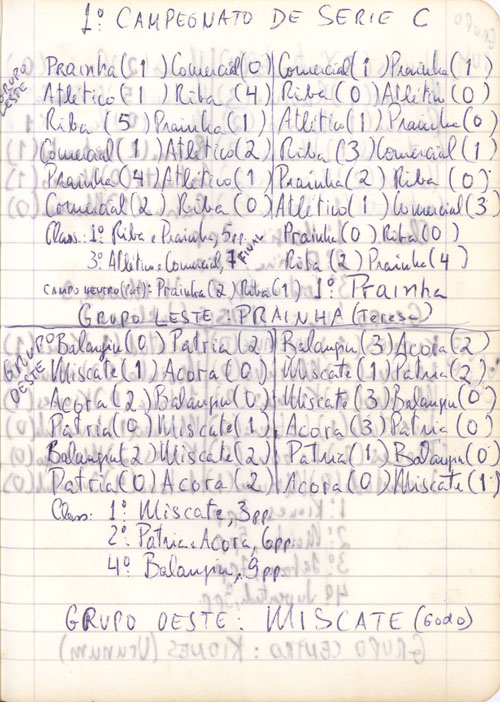 1º CAMPEGNATO DE SERIE C
GRUPO LESTE
Prainha (1) Comercial (0) Comercial (1) Prainha (1)
Atlético (1) Riba (4) Riba (0) Atlético (0)
Riba (5) Prainha (1) Atlético (1) Prainha (0)
Comercial (1) Atlético (2) Riba (3) Comercial (1)
Prainha (4) Atlético (1) Prainha (2) Riba (0)
Comercial (2) Riba (0) Atlético (1) Comercial (3)
Class: 1º Riba e Prainha, 5pp. Prainha (0) Riba (0)
3º Atlético e Comercial, 7 FINAL Riba (2) Prainha (4)
CAMPO NEUTRO (PAT): Prainha (2) Riba (1) 1º Prainha
GRUPO LESTE: PRAINHA (Teresa)
GRUPO OESTE
Balanpu (0) Patria (2) Balanpu (3) Acora (2)
Miscate (1) Acora (0) Miscate (1) Patria (2)
Acora (2) Balanpu (0) Miscate (3) Balanpu (0)
Patria (0) Miscate (1) Acora (3) Patria (0)
Balanpu (2) Miscate (2) Patria (1) Balanpu (0)
Patria (0) Acora (2) Acora (0) Miscate (1)
Class: 1º Miscate, 3pp.
2º Patria e Acora, 6pp.
4º Balanpu, 9pp.
GRUPO OESTE: MISCATE (Godo)